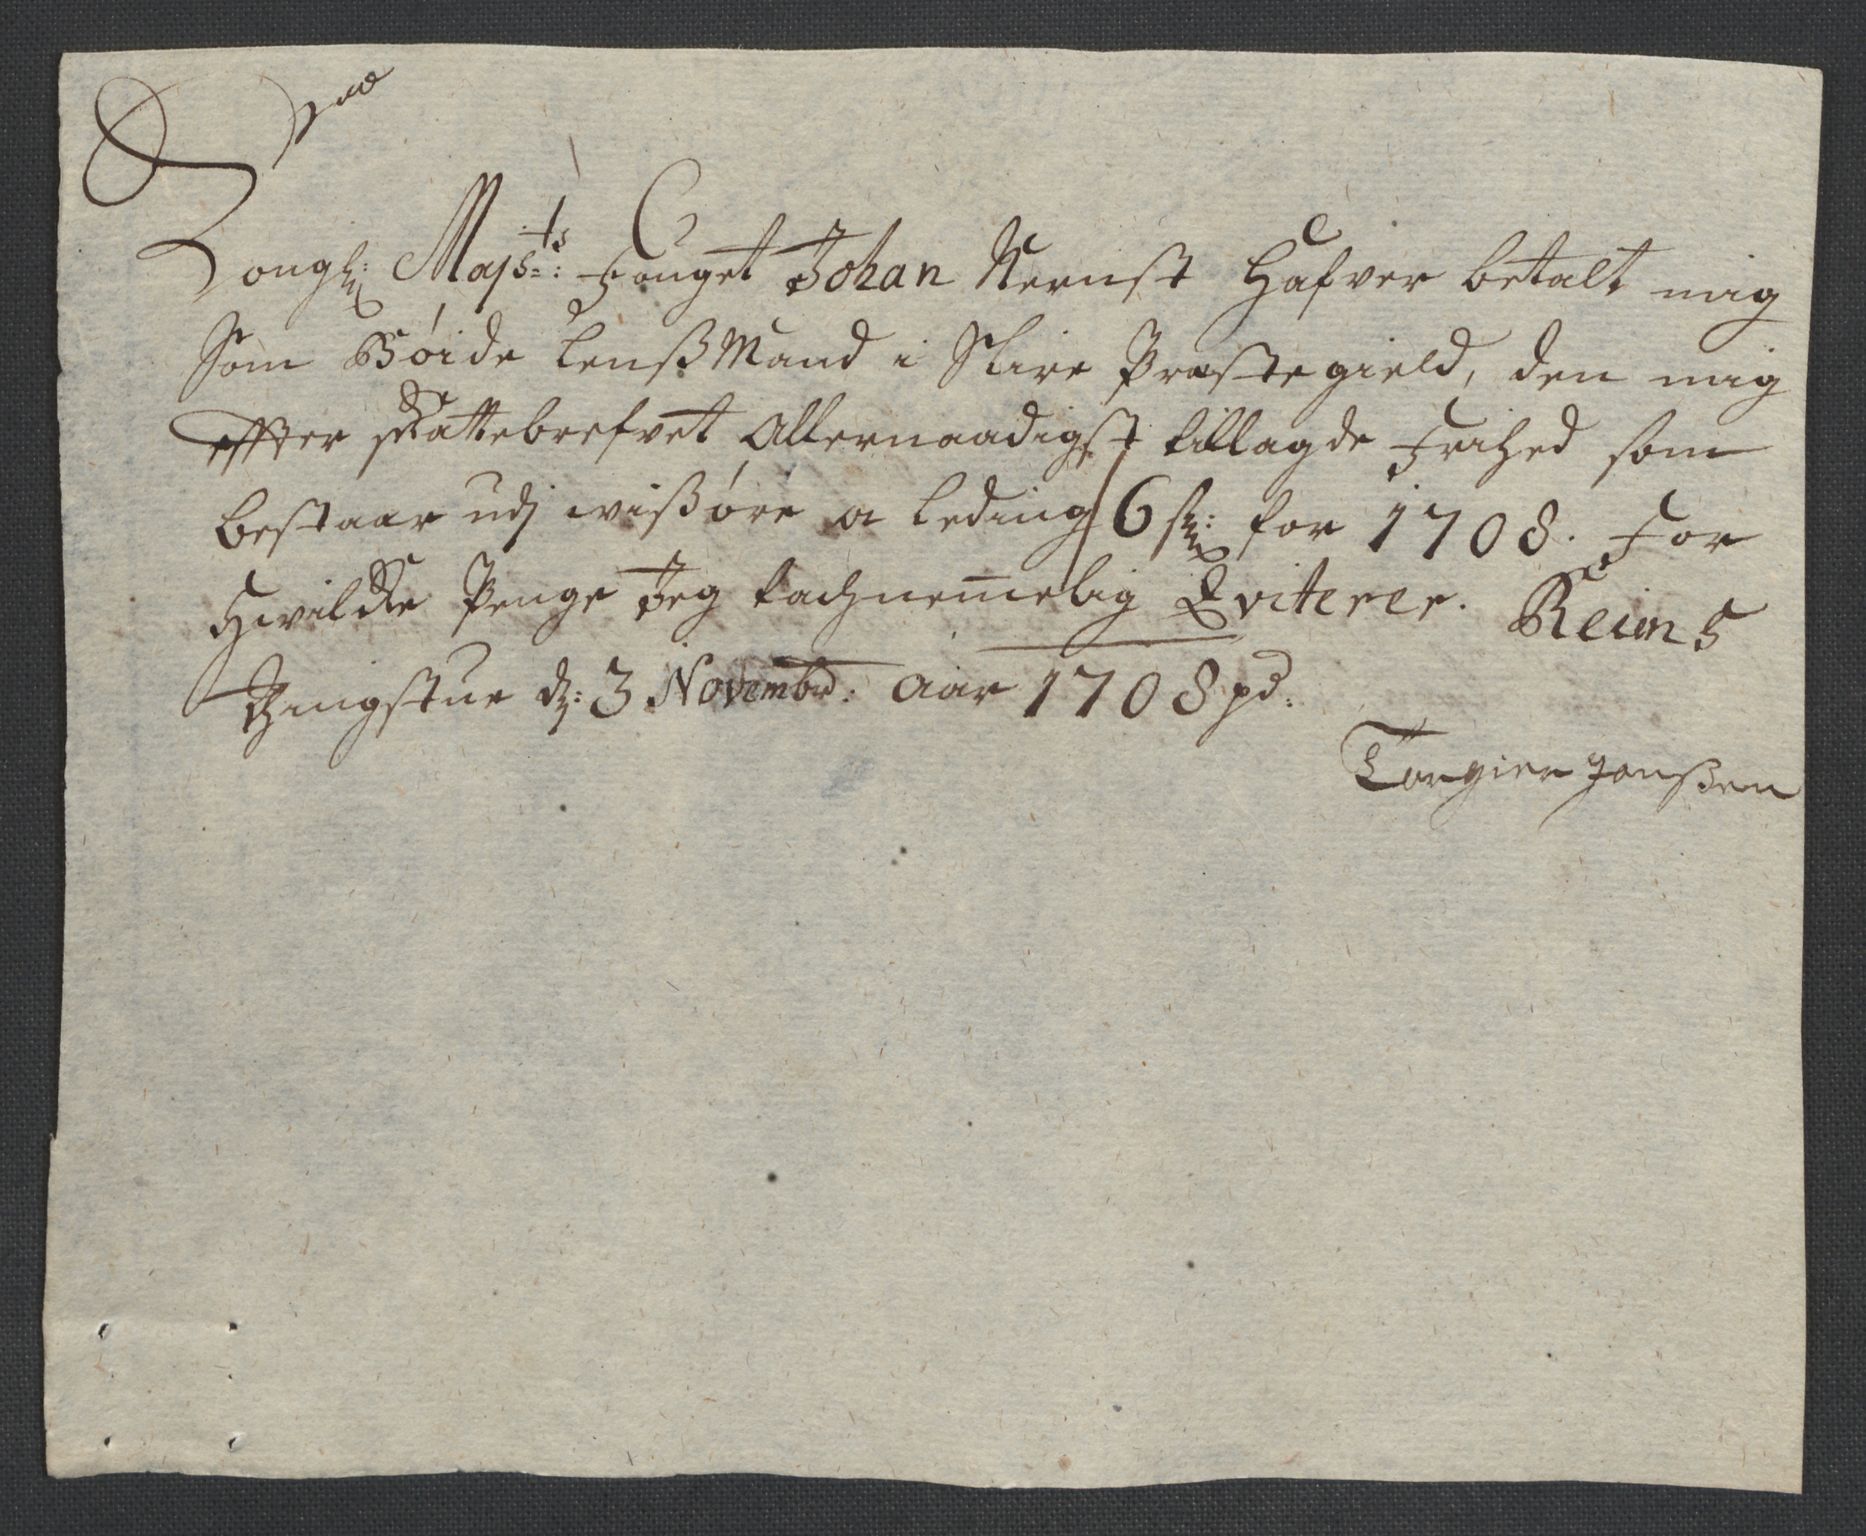 Kongl: Majts: Fouget Johan Nernst Hafver betalt mig
Som Bøide Lenßmand i Slire Præstegield, den mig
effter Skattebrefvet Allernaadigst tillagde Frihed som
bestaar udj wißøre a leding 6 sk: for 1708. For
Hvilcke Penge Jeg tachnemelig Qviterer. Reims
Tingstue d: 3 Novembr: Aar 1708
Torgier Jonßen